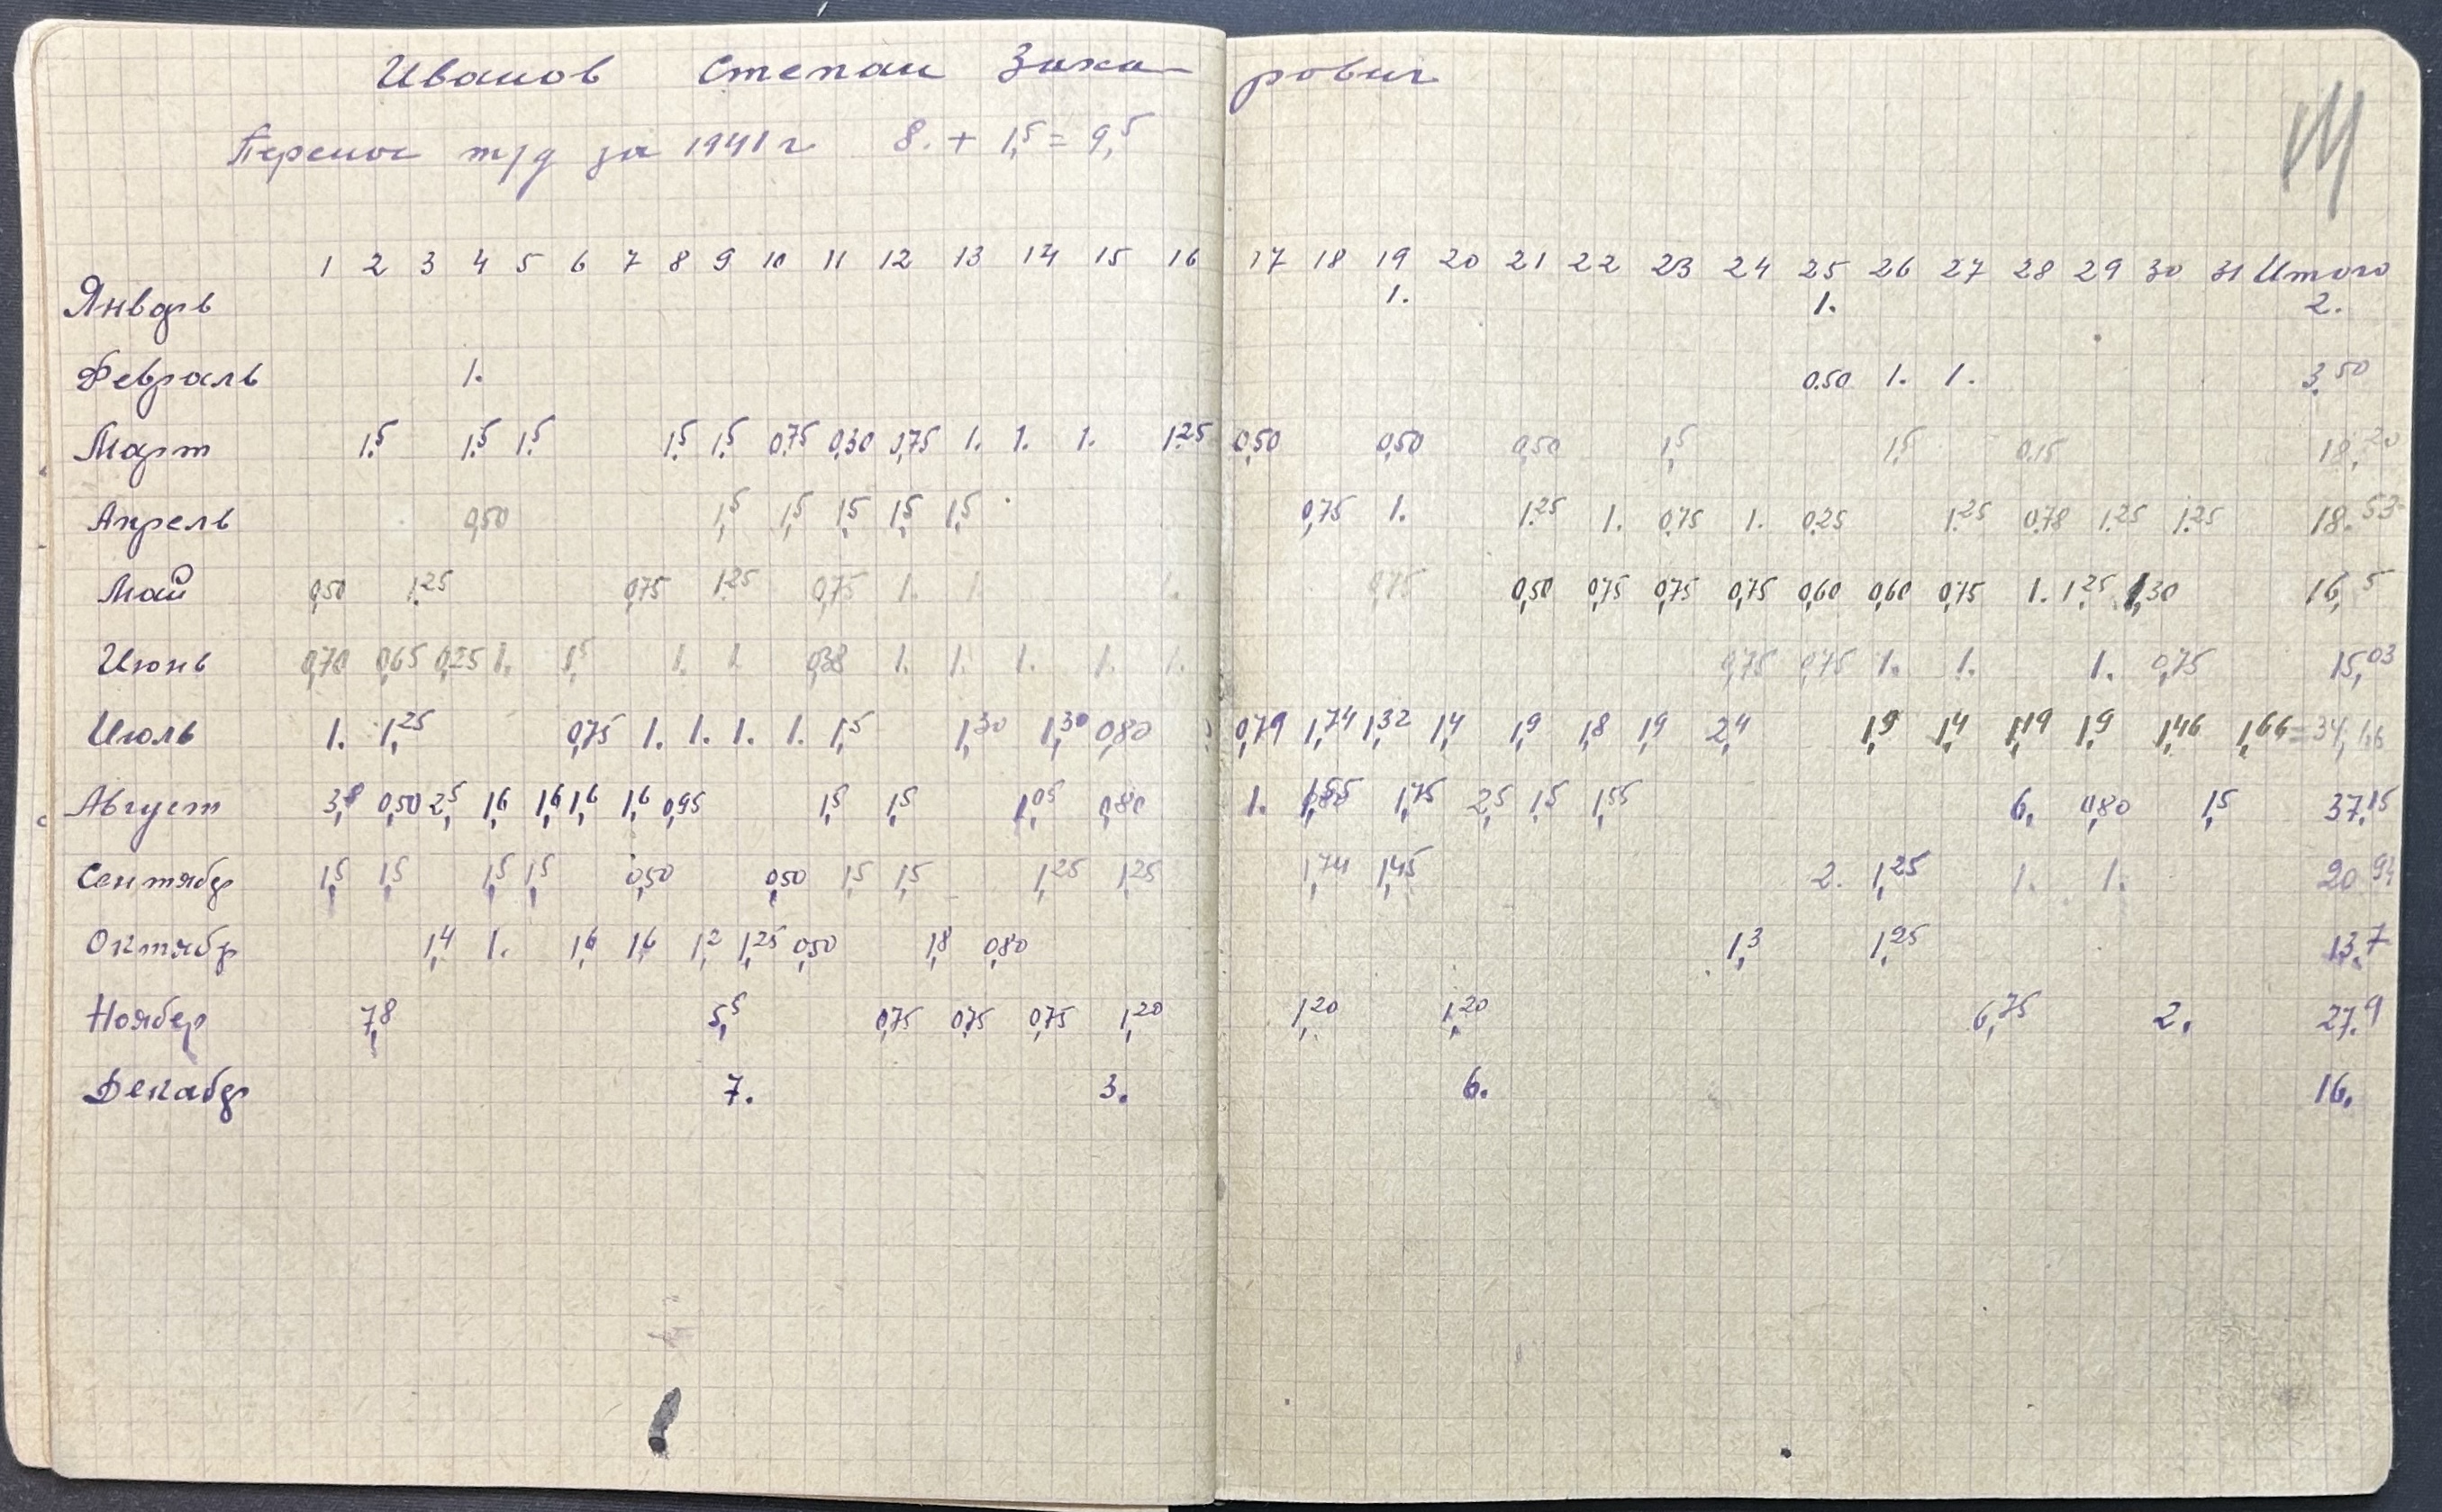 Иванов Степан Захарович
Перенос т/д за 1941 г 8. + 1,5 = 9,5
1 2 3 4 5 6 7 8 9 10 11 12 13 14 15 16 17 18 19 20 21 22 23 24 25 26 27 28 29 30 31 Итого
Январь 1. 1. 2.
Февраль 1. 0.50 1. 1. 3,50
Март 1.5 1.5 1.5 1.5 1.5 0,75 0,30 0,75 1. 1. 1. 1.25 0,50 0,50 0,50 1,5 1,5 0.15 18,20
Апрель 0,50 1,5 1,5 1,5 1,5 1,5 0,75 1. 1.25 1. 0,75 1. 0,25 1.25 0,78 1.25 1.25 18.53
Май 0,50 1.25 0,75 1.25 0,75 1. 1. 1. 0,75 0,50 0,75 0,75 0,75 0,60 0,60 0,75 1. 1,25 1,30 16,5
Июнь 0,70 0,65 0,25 1. 1,5 1. 1. 0,38 1. 1. 1. 1. 1. 0,75 0,75 1. 1. 1. 0,75 15,03
Июль 1. 1,25 0,75 1. 1. 1. 1. 1,5 1,30 1,30 0,80 0,79 1,74 1,32 1,4 1,9 1,8 1,9 2,4 1,9 1,4 1,19 1,9 1,46 1,66 = 34,
Август 3, 0,50 2,5 1,6 1,6 1,6 1,6 0,95 1,5 1,5 1,05 0,80 1. 1,75 2,5 1,5 1,55 6, 0,80 1,5 37,15
Сентябр 1,5 1,5 1,5 1,5 0,50 0,50 1,5 1,5 1,25 1,25 1,74 1,45 2. 1,25 1. 1. 20.94
Октябр 1,4 1. 1,6 1,6 1,2 1,25 0,50 1,8 0,80 1,3 1,25 13.7
Ноябер 7,8 5,5 0,75 0,75 0,75 1,20 1,20 1,20 6,75 2, 27.9
Декабр 7. 3. 6. 16.